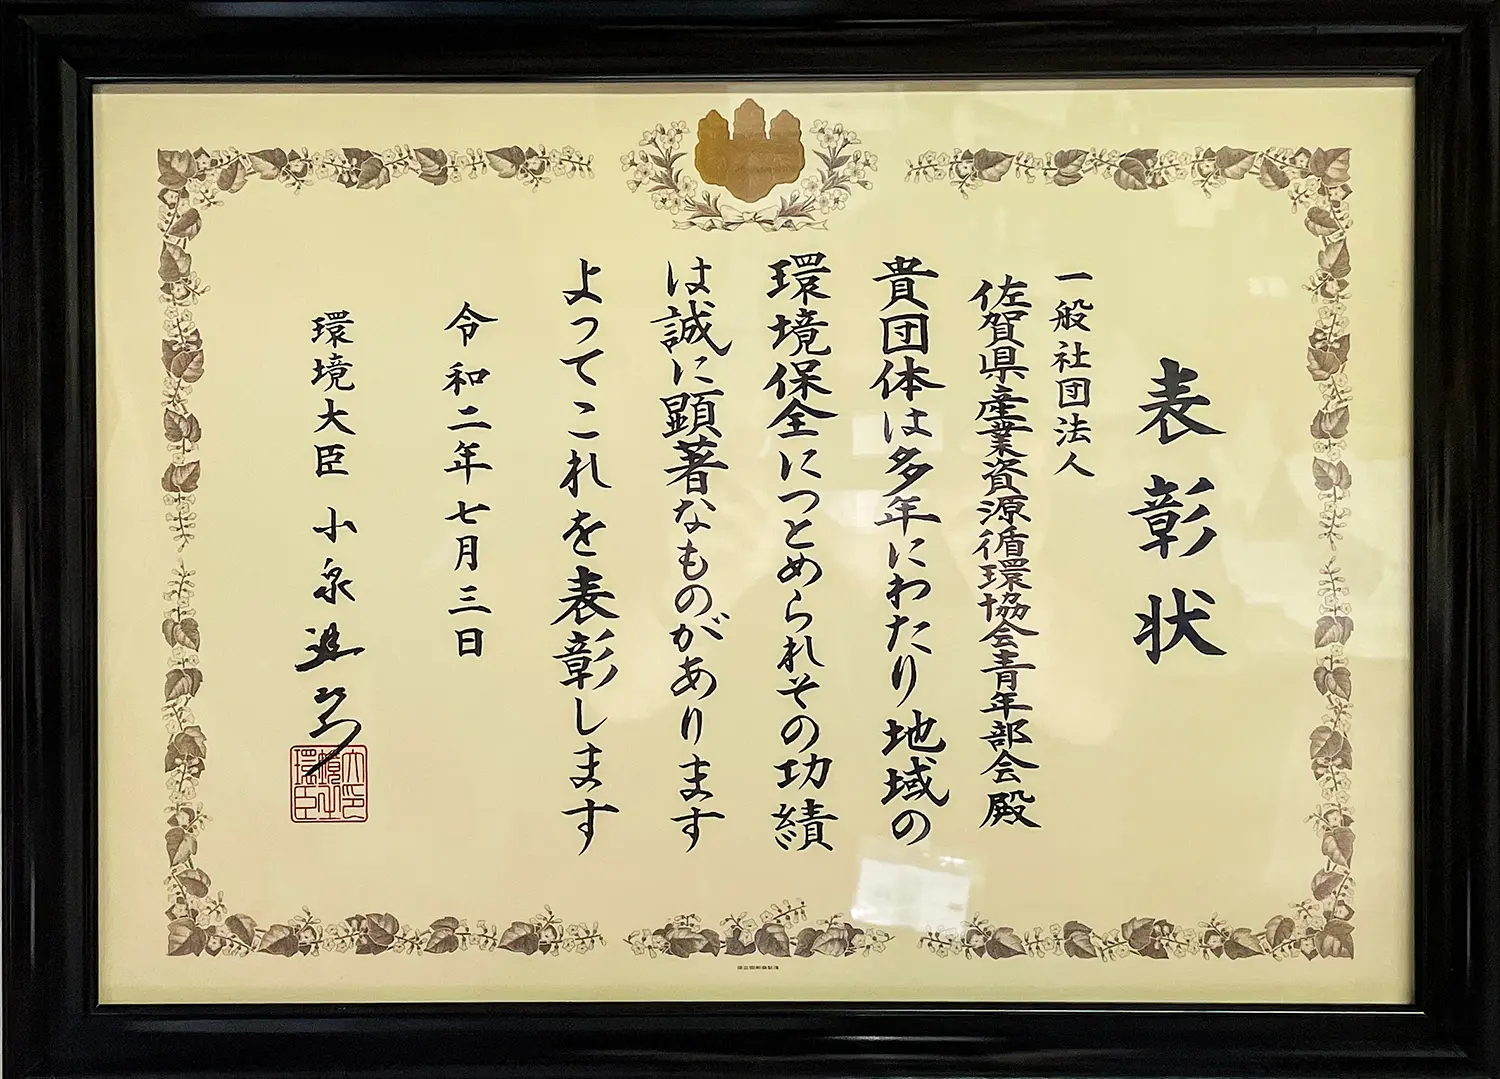 表彰状
一般社団法人
佐賀県産業資源循環協会青年部会殿
貴団体は多年にわたり地域の
環境保全につとめられその功績
は誠に顕著なものがあります
よってこれを表彰します
令和二年七月三日
環境大臣 小泉進次郎